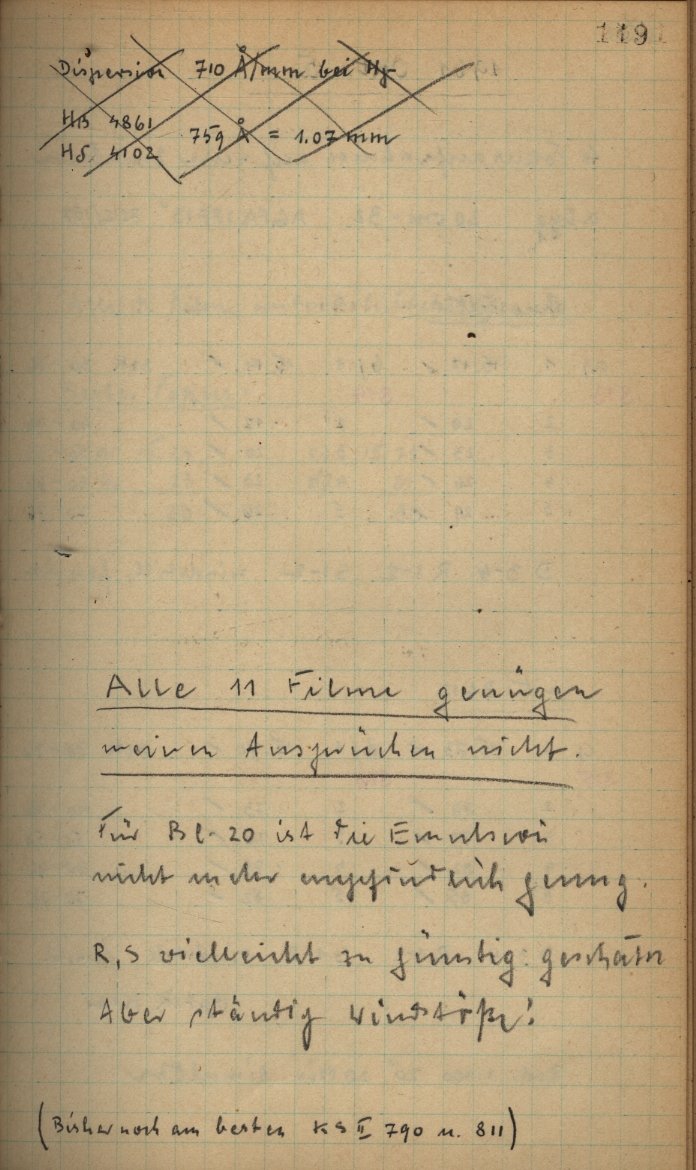 1191
Dispersion 710 Å/mm bei Hγ
Hβ 4861
759 Å = 1.07 mm
Hδ 4102
Alle 11 Filme genügen
meinen Ansprüchen nicht.
Für Bl-20 ist die Emulsion
nicht mehr empfindlich genug.
R, S vielleicht zu günstig geschätzt
Aber ständig Windstöße!
(Bisher noch am besten KS II 790 u. 811)